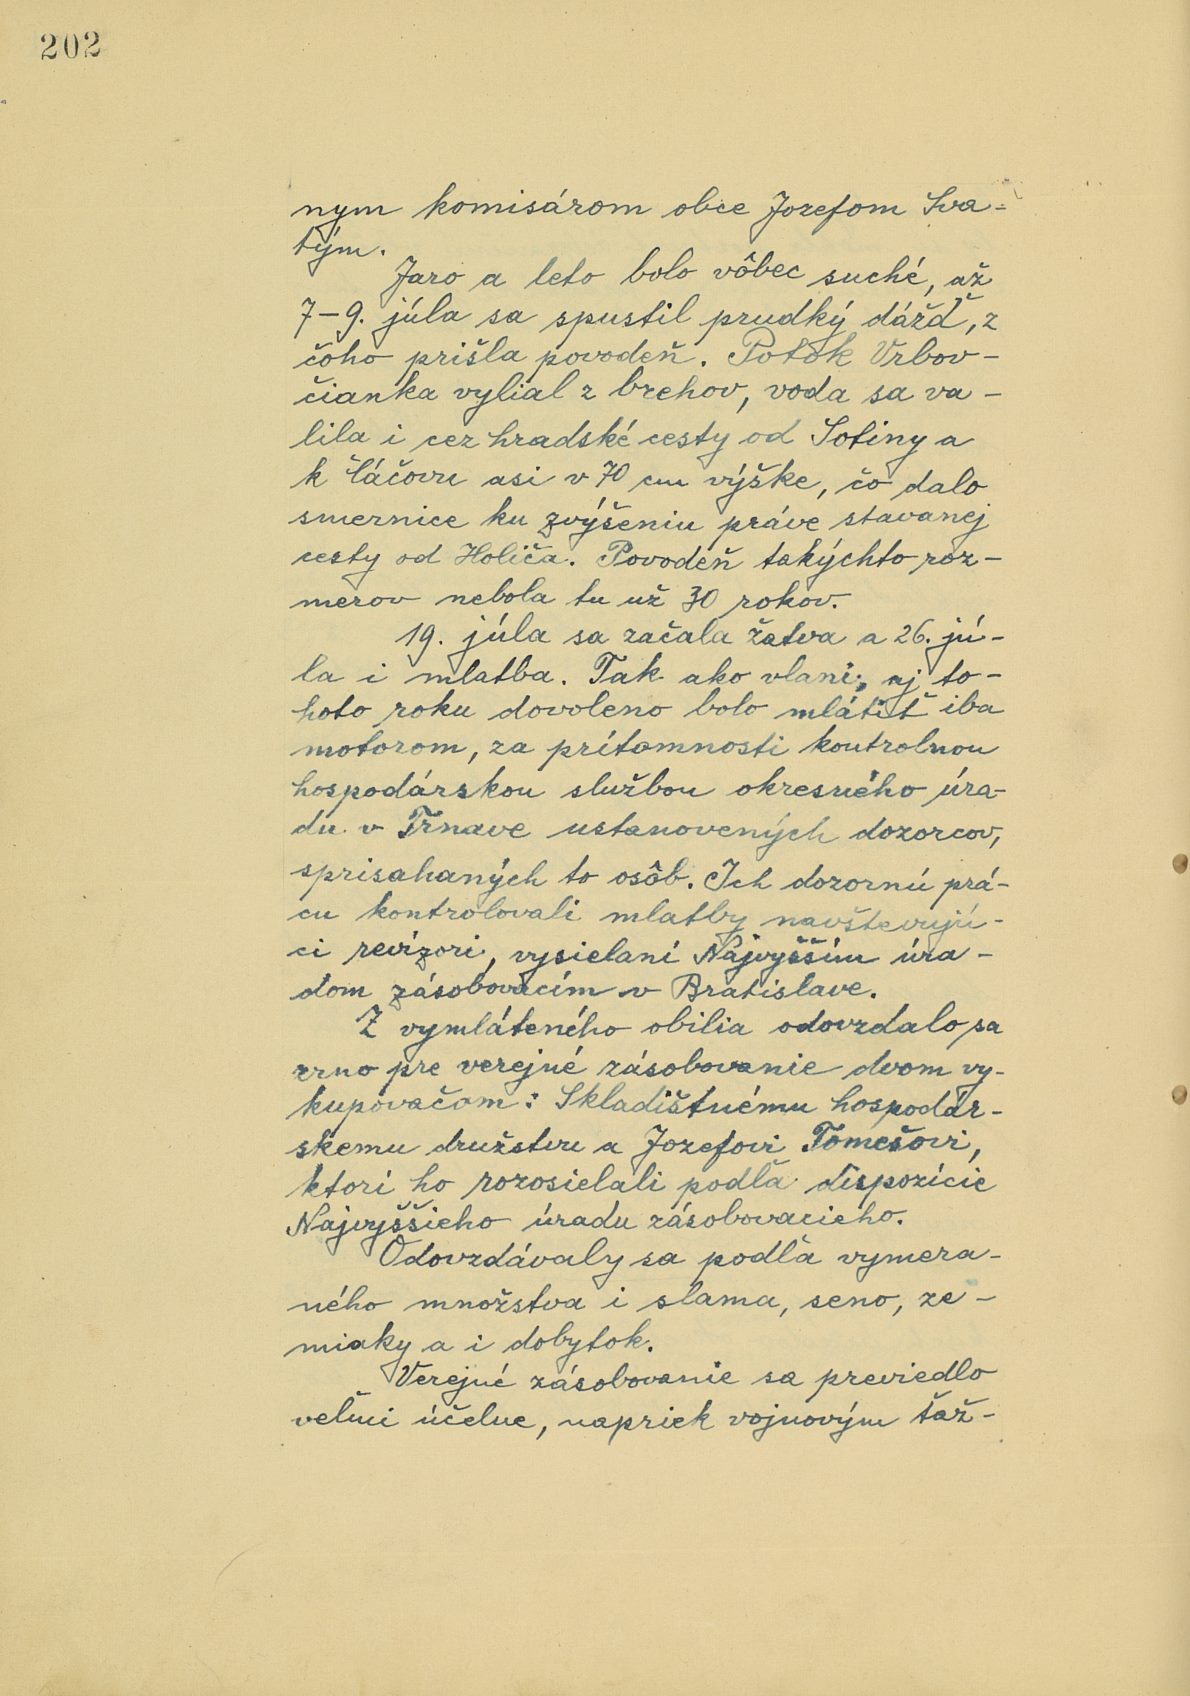 202
nym komisárom obce Jozefom Sva-
tým.
Jaro a leto bolo vôbec suché, až
7-9. júla sa spustil prudký dážď, z
čoho prišla povodeň. Potok Vrbov-
čianka vylial z brehov, voda sa va-
lila i cez hradské cesty od Sotiny a
k Čáčovu asi v 70 cm výške, čo dalo
smernice ku zvýšeniu práve stavanej
cesty od Holíča. Povodeň takýchto roz-
merov nebola tu už 30 rokov.
19. júla sa začala žatva a 26. jú-
la i mlatba. Tak ako vlani, aj to-
hoto roku dovoleno bolo mlátiť iba
motorom, za prítomnosti kontrolnou
hospodárskou službou okresného úra-
du v Trnave ustanovených dozorcov,
sprisahaných to osôb. Ich dozornú prá-
cu kontrolovali mlatby navštevujú-
ci revízori, vysielaní Najvyšším úra-
dom zásobovacím v Bratislave.
Z vymláteného obilia odovzdalo sa
zrno pre verejné zásobovanie dvom vy-
kupovačom: Skladištnému hospodár-
skemu družstvu a Jozefovi Tomešovi,
ktorí ho rozosielali podľa dispozície
Najvyššieho úradu zásobovacieho.
Odovzdávaly sa podľa vymera-
ného množstva i slama, seno, ze-
miaky a i dobytok.
Verejné zásobovanie sa previedlo
veľmi účelne, napriek vojnovým ťaž-